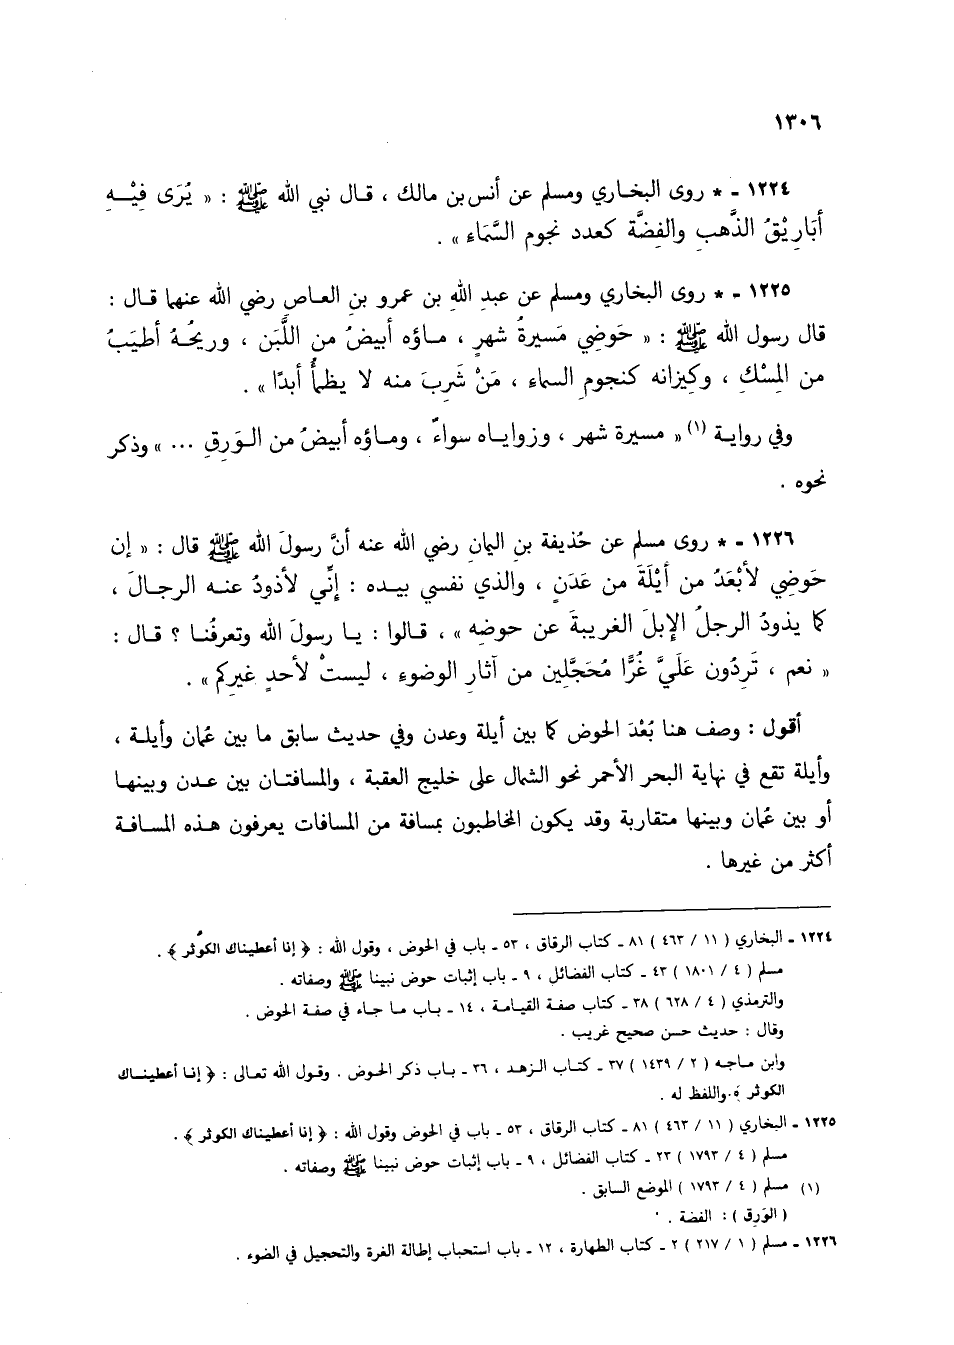 ١٣٠٦
١٢٢٤ - * روى البخاري ومسلم عن أنس بن مالك ، قال نبي الله ﷺ : « يُرَى فِيْهِ
أبَارِيْقُ الذَّهبِ والفِضَّة كعدد نجوم السَّمَاء » .
١٢٢٥ - * روى البخاري ومسلم عن عبدِ اللهِ بن عمرو بنِ العاصِ رضي الله عنهما قال :
قال رسول الله ﷺ : « حَوضِي مَسيرةُ شهرٍ ، ماؤه أبيضُ من اللَّبَن ، وريحُهُ أطيَبُ
من المِسْكِ ، وكيزانه كنجومِ السماء ، مَنْ شَرِبَ منه لا يظمأُ أبدًا » .
وفي رواية (١) « مسيرة شهر ، وزواياه سواءٌ ، وماؤه أبيضُ من الوَرِقِ ... » وذكر
نحوه .
١٢٢٦ - * روى مسلم عن حُذيفة بنِ اليمانِ رضي الله عنه أنَّ رسولَ الله ﷺ قال : « إن
حَوضِي لأبْعَدُ من أيْلَةَ من عَدَنٍ ، والذي نفسي بيده : إنِّي لأذودُ عنه الرجالَ ،
كما يذودُ الرجلُ الإبلَ الغريبةَ عن حوضِه » ، قالوا : يا رسولَ الله وتعرفُنا ؟ قال :
« نعم ، تَرِدُون عَلَيَّ غُرًّا مُحَجَّلِين من آثارِ الوضوءِ ، ليستْ لأحدٍ غيرِكم » .
أقول : وصف هنا بُعْدَ الحوض كما بين أيلة وعدن وفي حديث سابق ما بين عُمان وأيلة ،
وأيلة تقع في نهاية البحر الأحمر نحو الشمال على خليج العقبة ، والمسافتان بين عدن وبينها
أو بين عُمان وبينها متقاربة وقد يكون المخاطبون بمسافة من المسافات يعرفون هذه المسافة
أكثر من غيرها .
١٢٢٤ - البخاري ( ١١ / ٤٦٣ ) ٨١ - كتاب الرقاق ، ٥٣ - باب في الحوض ، وقول الله : ﴿ إنا أعطيناك الكوثر ﴾ .
مسلم ( ٤ / ١٨٠١ ) ٤٣ - كتاب الفضائل ، ٩ - باب إثبات حوض نبينا ﷺ وصفاته .
والترمذي ( ٤ / ٦٢٨ ) ٣٨ - كتاب صفة القيامة ، ١٤ - باب ما جاء في صفة الحوض .
وقال : حديث حسن صحيح غريب .
وابن ماجه ( ٢ / ١٤٣٩ ) ٣٧ - كتاب الزهد ، ٣٦ - باب ذكر الحوض . وقول الله تعالى : ﴿ إنا أعطيناك
الكوثر ﴾ . واللفظ له .
١٢٢٥ - البخاري ( ١١ / ٤٦٣ ) ٨١ - كتاب الرقاق ، ٥٣ - باب في الحوض وقول الله : ﴿ إنا أعطيناك الكوثر ﴾ .
مسلم ( ٤ / ١٧٩٣ ) ٢٣ - كتاب الفضائل ، ٩ - باب إثبات حوض نبينا ﷺ وصفاته .
(١) مسلم ( ٤ / ١٧٩٣ ) الموضع السابق .
( الوَرِق ) : الفضة .
١٢٢٦ - مسلم ( ١ / ٢١٧ ) ٢ - كتاب الطهارة ، ١٢ - باب استحباب إطالة الغرة والتحجيل في الضوء .